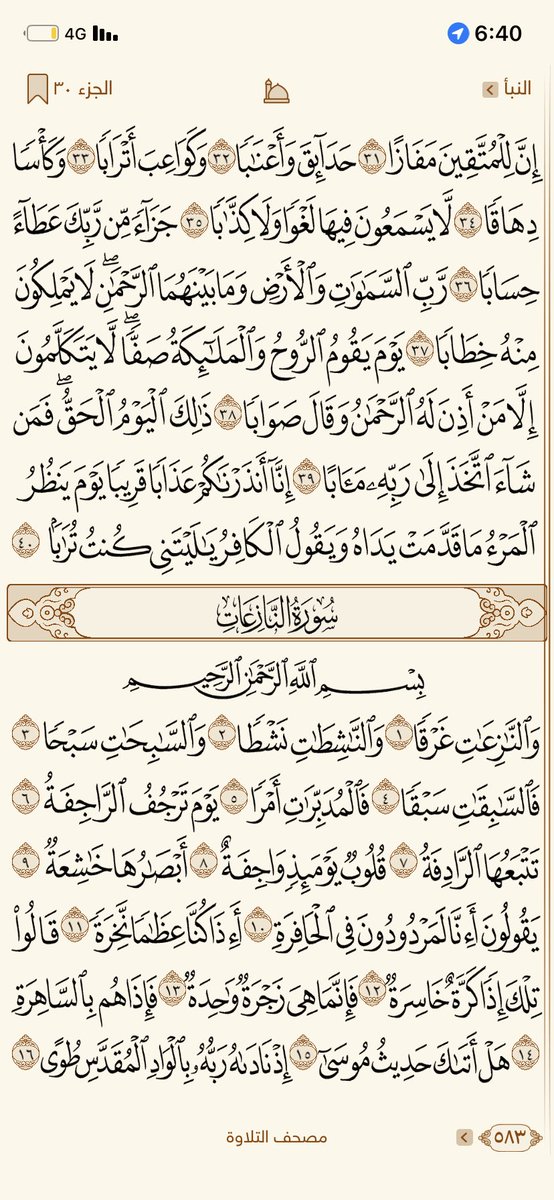 4G 6:40
النبأ الجزء ٣٠
إِنَّ لِلْمُتَّقِينَ مَفَازًا ٣١ حَدَآئِقَ وَأَعْنَٰبًا ٣٢ وَكَوَاعِبَ أَتْرَابًا ٣٣ وَكَأْسًا
دِهَاقًا ٣٤ لَّا يَسْمَعُونَ فِيهَا لَغْوًا وَلَا كِذَّٰبًا ٣٥ جَزَآءً مِّن رَّبِّكَ عَطَآءً
حِسَابًا ٣٦ رَّبِّ ٱلسَّمَٰوَٰتِ وَٱلْأَرْضِ وَمَا بَيْنَهُمَا ٱلرَّحْمَٰنِۖ لَا يَمْلِكُونَ
مِنْهُ خِطَابًا ٣٧ يَوْمَ يَقُومُ ٱلرُّوحُ وَٱلْمَلَٰٓئِكَةُ صَفًّاۖ لَّا يَتَكَلَّمُونَ
إِلَّا مَنْ أَذِنَ لَهُ ٱلرَّحْمَٰنُ وَقَالَ صَوَابًا ٣٨ ذَٰلِكَ ٱلْيَوْمُ ٱلْحَقُّۖ فَمَن
شَآءَ ٱتَّخَذَ إِلَىٰ رَبِّهِۦ مَـَٔابًا ٣٩ إِنَّآ أَنذَرْنَٰكُمْ عَذَابًا قَرِيبًا يَوْمَ يَنظُرُ
ٱلْمَرْءُ مَا قَدَّمَتْ يَدَاهُ وَيَقُولُ ٱلْكَافِرُ يَٰلَيْتَنِى كُنتُ تُرَٰبًۢا ٤٠
سُورَةُ النَّازِعَاتِ
بِسْمِ ٱللَّهِ ٱلرَّحْمَٰنِ ٱلرَّحِيمِ
وَٱلنَّٰزِعَٰتِ غَرْقًا ١ وَٱلنَّٰشِطَٰتِ نَشْطًا ٢ وَٱلسَّٰبِحَٰتِ سَبْحًا ٣
فَٱلسَّٰبِقَٰتِ سَبْقًا ٤ فَٱلْمُدَبِّرَٰتِ أَمْرًا ٥ يَوْمَ تَرْجُفُ ٱلرَّاجِفَةُ ٦
تَتْبَعُهَا ٱلرَّادِفَةُ ٧ قُلُوبٌ يَوْمَئِذٍ وَاجِفَةٌ ٨ أَبْصَٰرُهَا خَٰشِعَةٌ ٩
يَقُولُونَ أَءِنَّا لَمَرْدُودُونَ فِى ٱلْحَافِرَةِ ١٠ أَءِذَا كُنَّا عِظَٰمًا نَّخِرَةً ١١ قَالُوا۟
تِلْكَ إِذًا كَرَّةٌ خَاسِرَةٌ ١٢ فَإِنَّمَا هِىَ زَجْرَةٌ وَٰحِدَةٌ ١٣ فَإِذَا هُم بِٱلسَّاهِرَةِ
١٤ هَلْ أَتَىٰكَ حَدِيثُ مُوسَىٰٓ ١٥ إِذْ نَادَىٰهُ رَبُّهُۥ بِٱلْوَادِ ٱلْمُقَدَّسِ طُوًى ١٦
٥٨٣ مصحف التلاوة